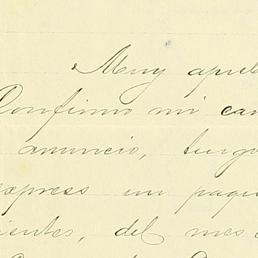 Muy apre
Confirmo mi ca
anuncio, teng
express un paqu
ientes, del mes